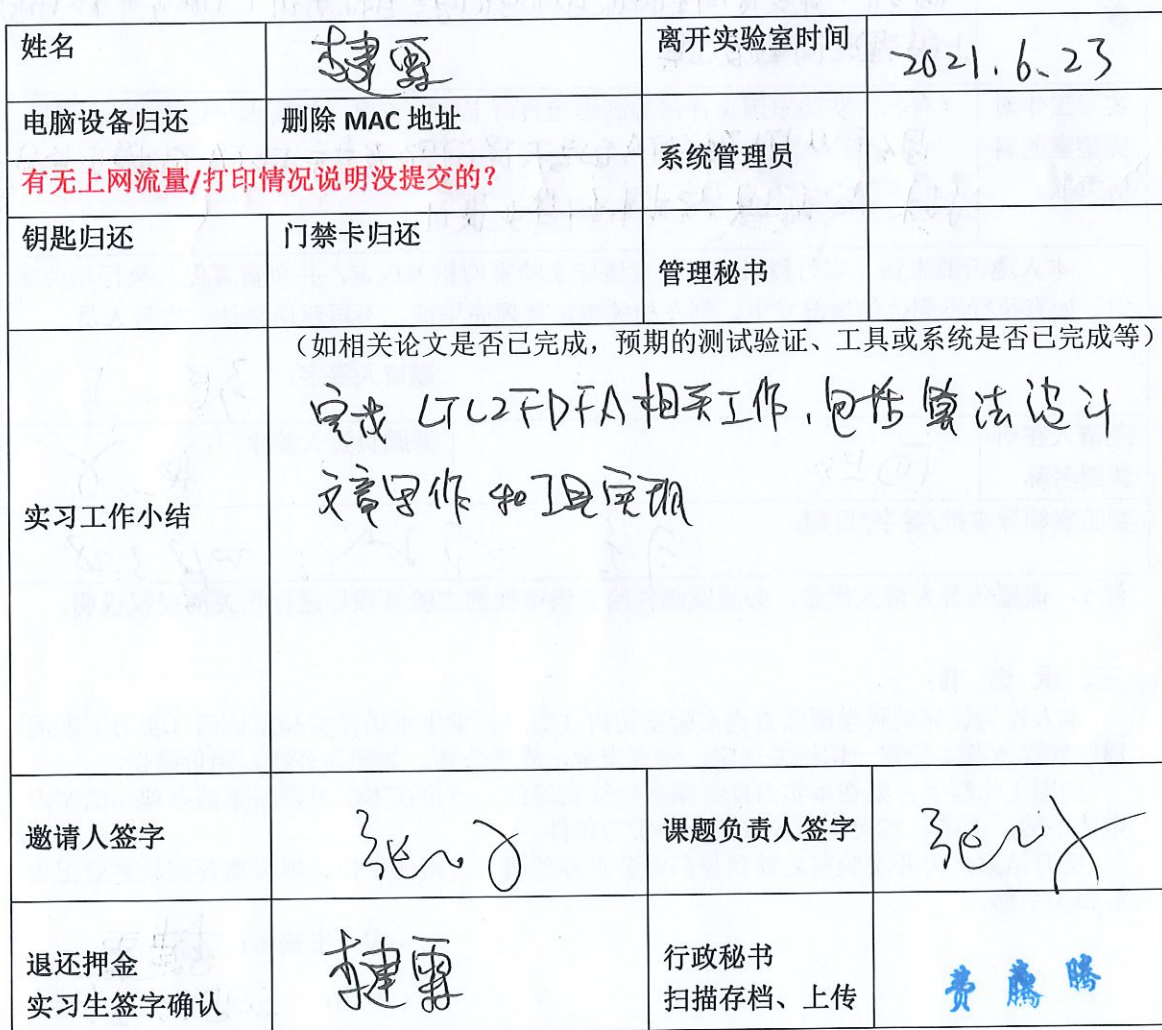 姓名
离开实验室时间 2021.6.23
电脑设备归还 删除 MAC 地址
系统管理员
有无上网流量/打印情况说明没提交的?
钥匙归还 门禁卡归还
管理秘书
(如相关论文是否已完成,预期的测试验证、工具或系统是否已完成等)
完成 LTL2FDFA 相关工作,包括算法设计
文章写作和工具实现
实习工作小结
邀请人签字
课题负责人签字
退还押金
实习生签字确认
行政秘书
扫描存档、上传
费 腾 腾